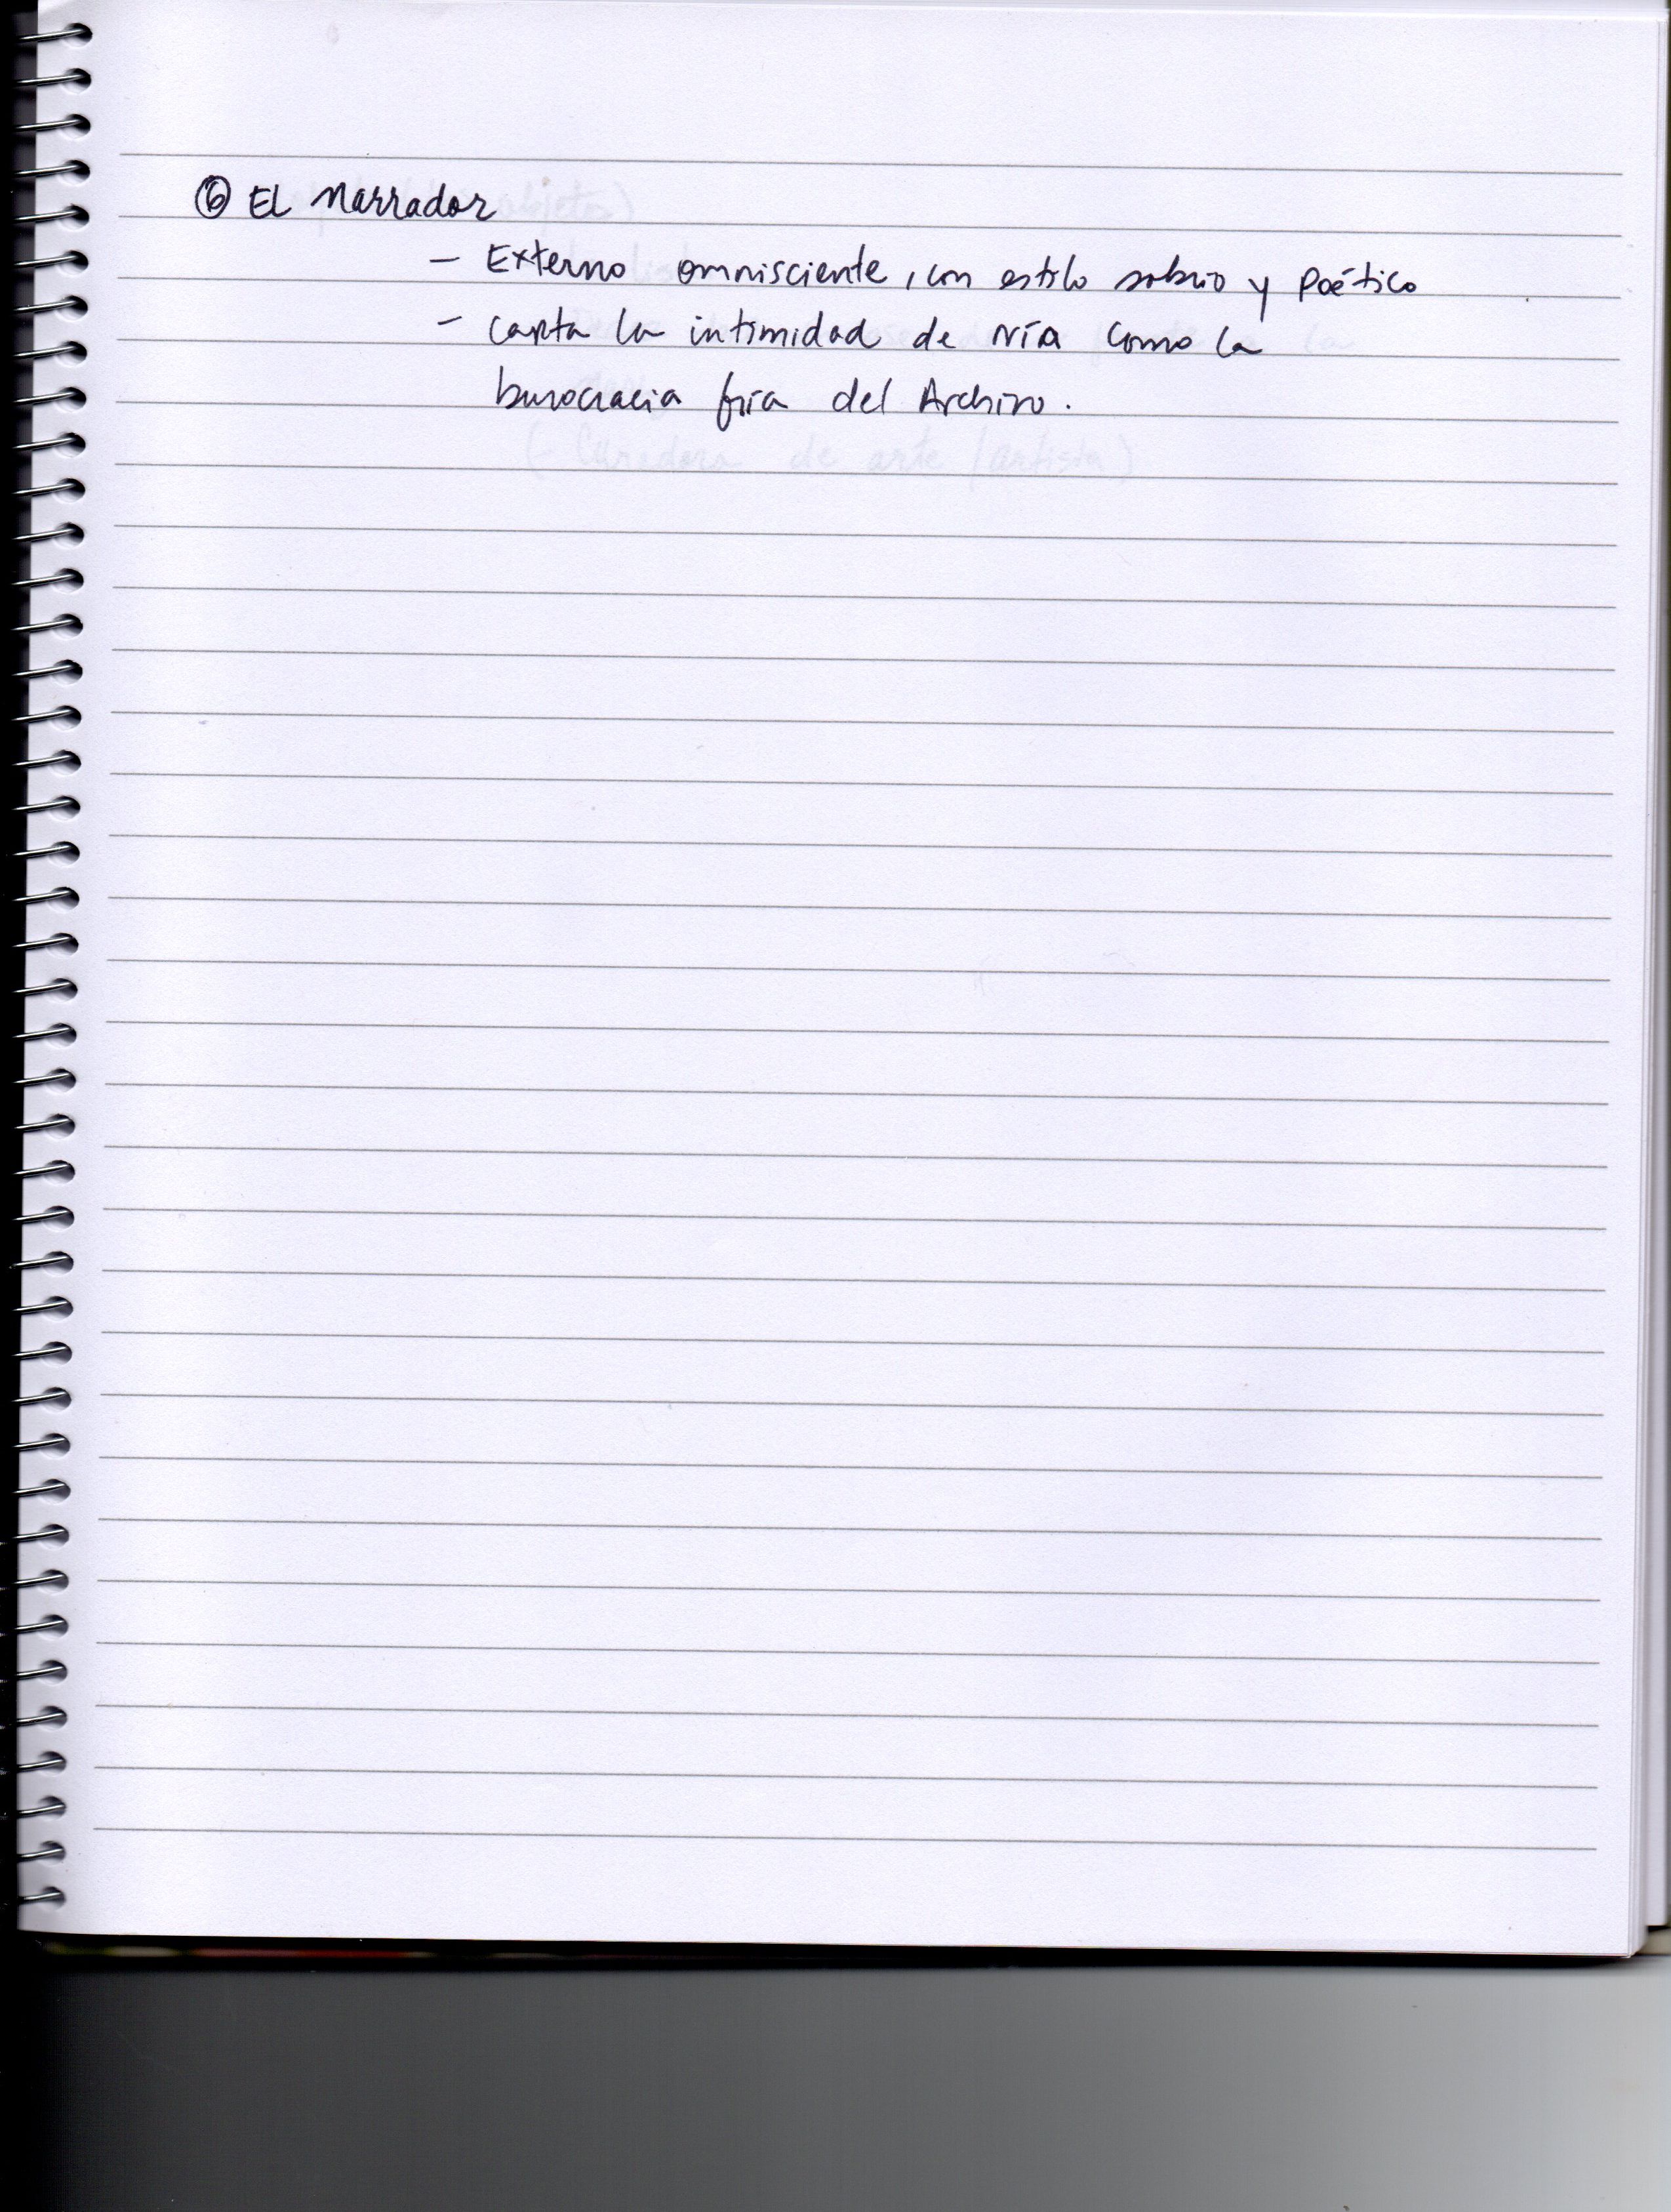 ⑥ El Narrador
- Externo omnisciente, con estilo sobrio y poético
- Capta la intimidad de Nía como la
burocracia fría del Archivo.
(- Curadora de arte / artista)